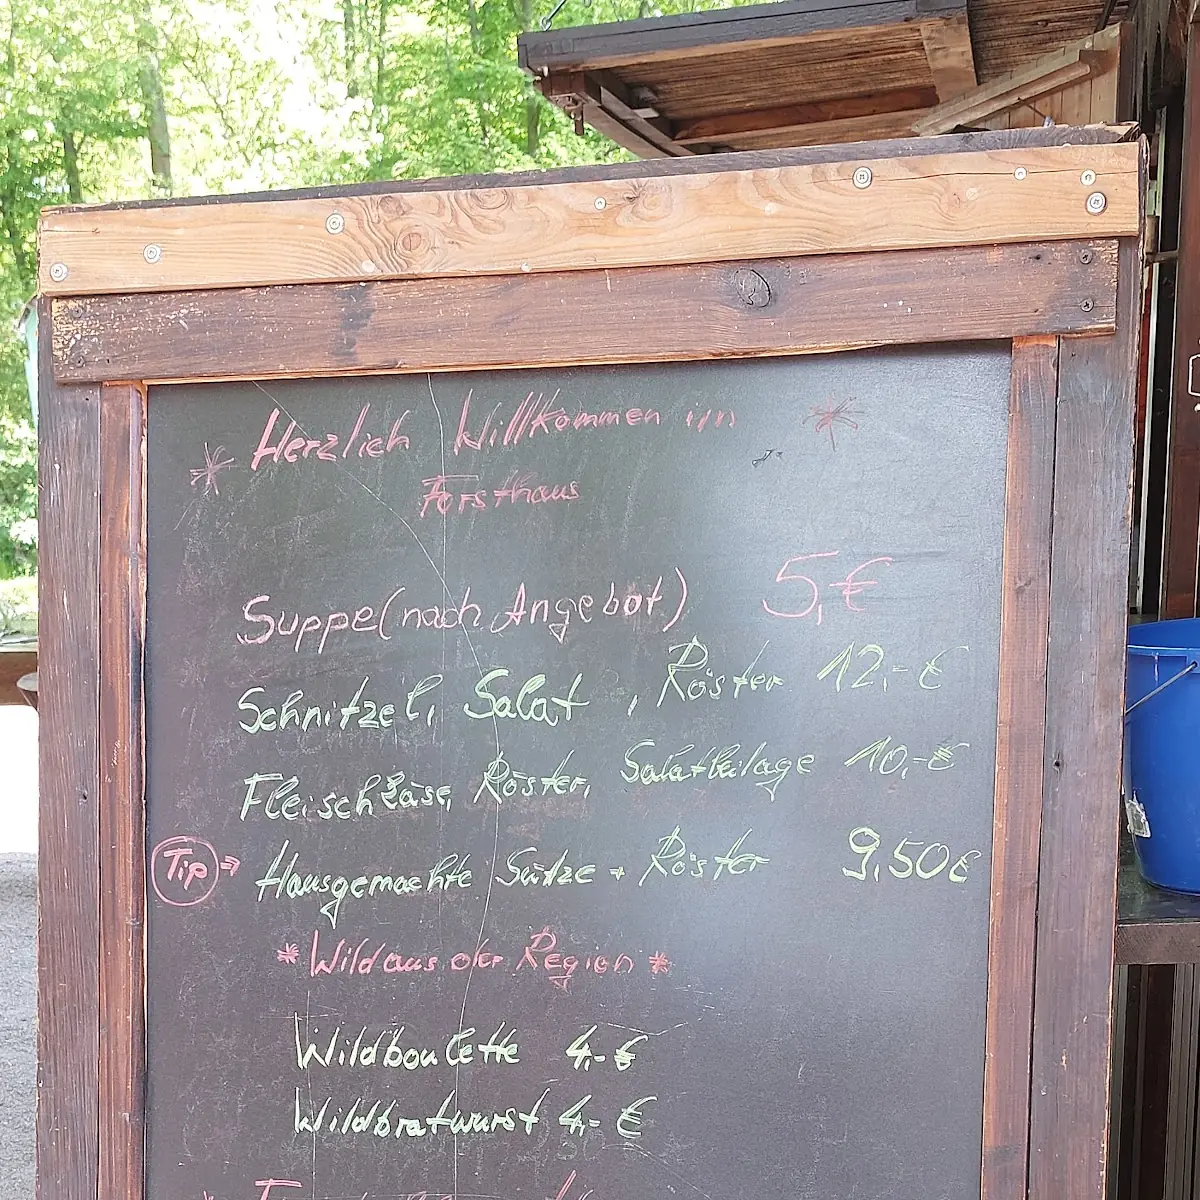 * Herzlich Willkommen im *
Forsthaus
Suppe (nach Angebot) 5,€
Schnitzel, Salat, Röster 12,-€
Fleischkäse, Röster, Salatbeilage 10,-€
Tip → Hausgemachte Sülze + Röster 9,50€
* Wild aus der Region *
Wildboulette 4,-€
Wildbratwurst 4,-€